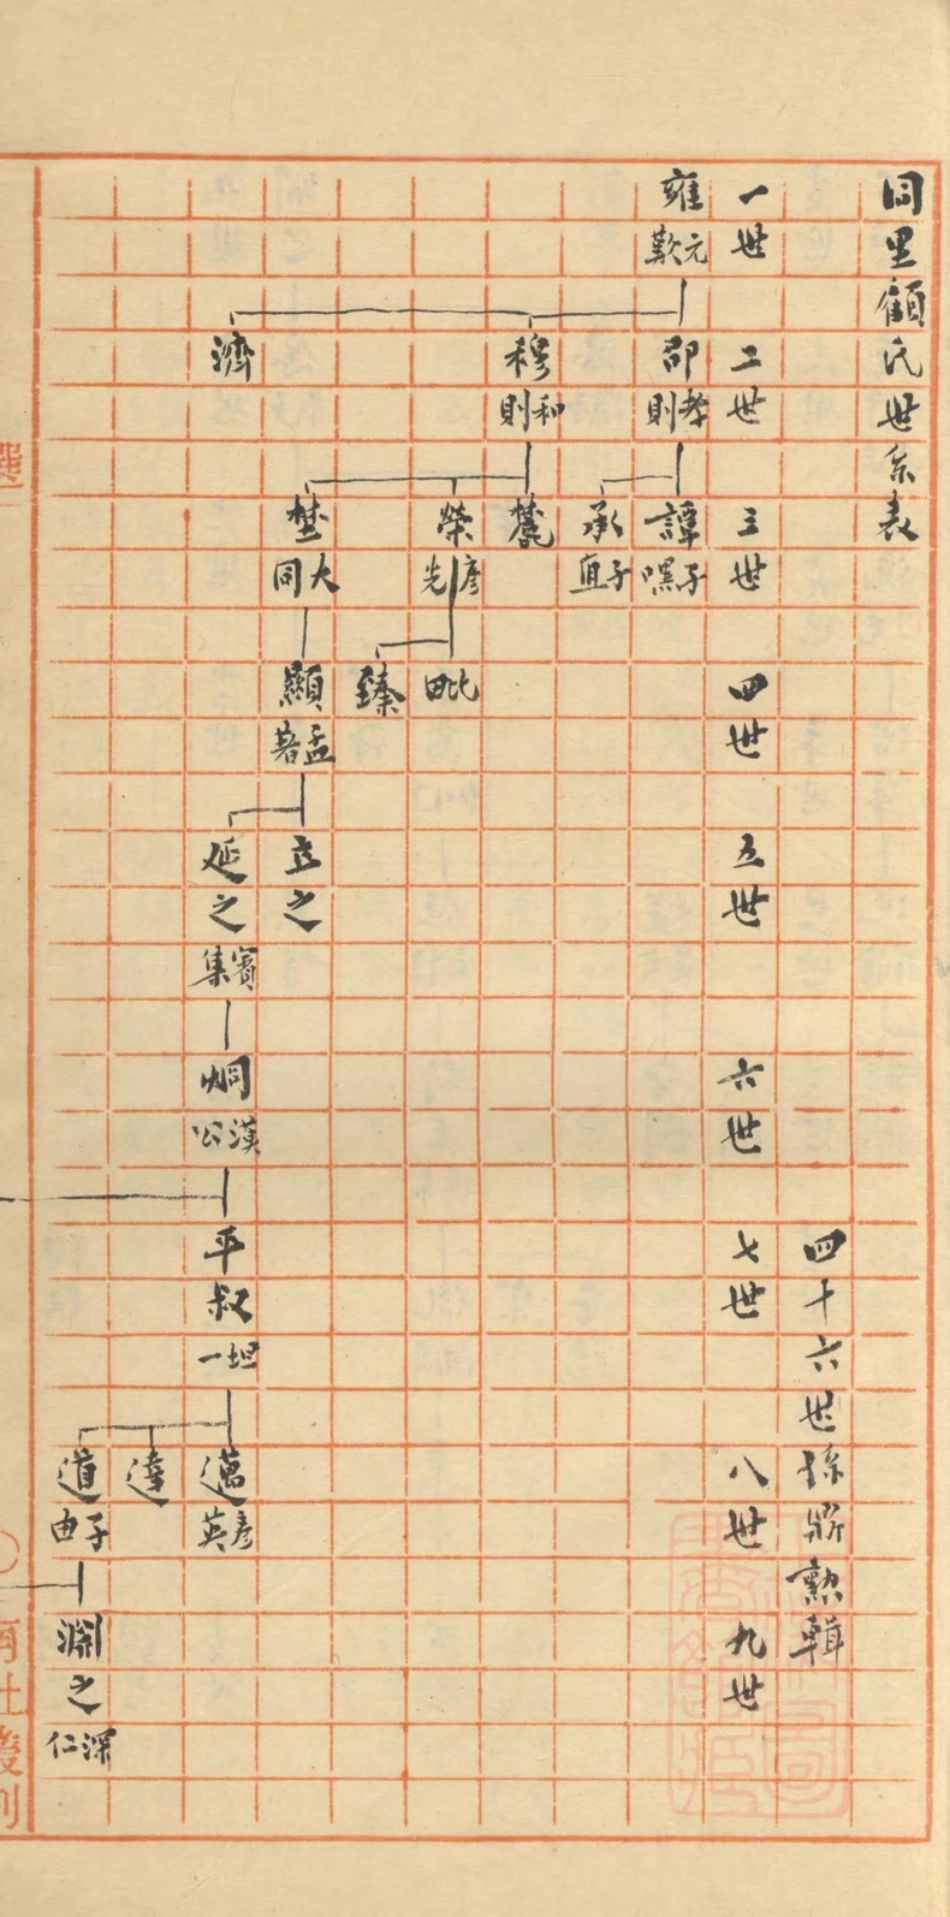 同里顧氏世系表
四十六世孫鼎勲輯
一世
二世
三世
四世
五世
六世
七世
八世
九世
雍 元歎
邵 孝則
穆 和則
濟
譚 子嘿
承 子直
榮 彥先
大同
毗
臻
顯 孟著
立之
延之 賓集
烱 漢公
平叔 坦一
邁 彥英
達
道 子由
淵之 深仁